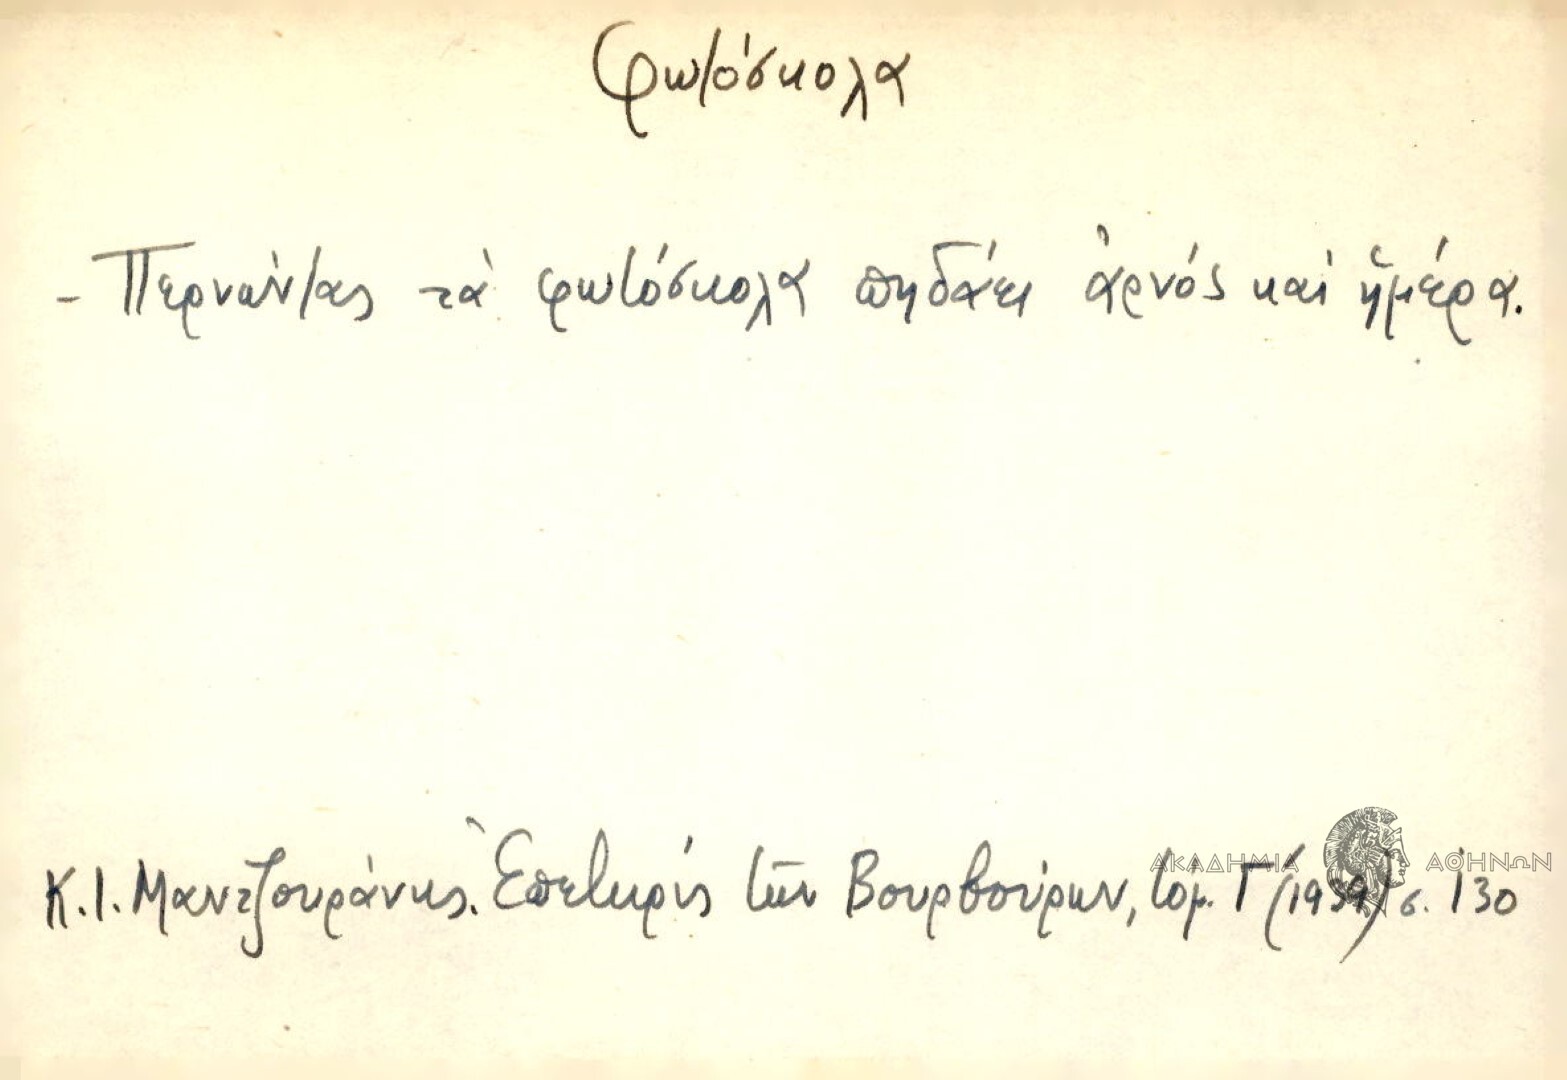 Φωτόσκολα
- Περνώντας τὰ φωτόσκολα πηδάει ἀρνός καί ἡμέρα.
Κ. Ι. Μαντζουράνης. Ἐπετηρίς τῶν Βουρβούρων, τόμ. Γ΄ (1939) σ. 130
ΑΚΑΔΗΜΙΑ ΑΘΗΝΩΝ